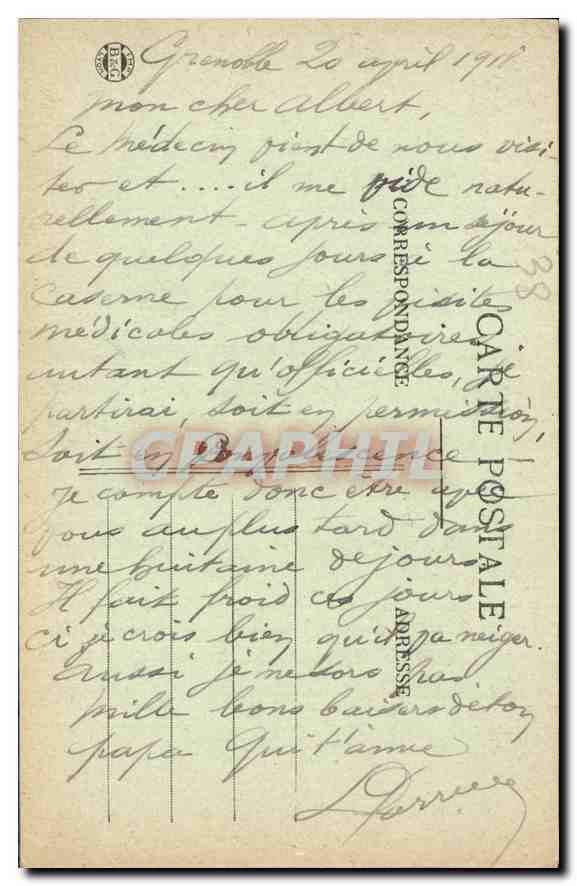 Grenoble 20 april 1918
mon cher Albert,
Le médecin vient de nous visi-
ter et .... il me vide natu-
rellement - après un séjour
de quelques jours à la
caserne pour les visites
médicales obligatoires
autant qu'officielles, je
partirai, soit en permission,
soit en convalescence
je compte donc être avec
vous au plus tard dans
une huitaine de jours
Il fait froid ces jours
ci je crois bien qu'il va neiger.
aussi je ne sors pas
mille bons baisers de ton
papa qui t'aime
38
CARTE POSTALE
CORRESPONDANCE
ADRESSE
IMP. B&G LYON
CPAPHIL